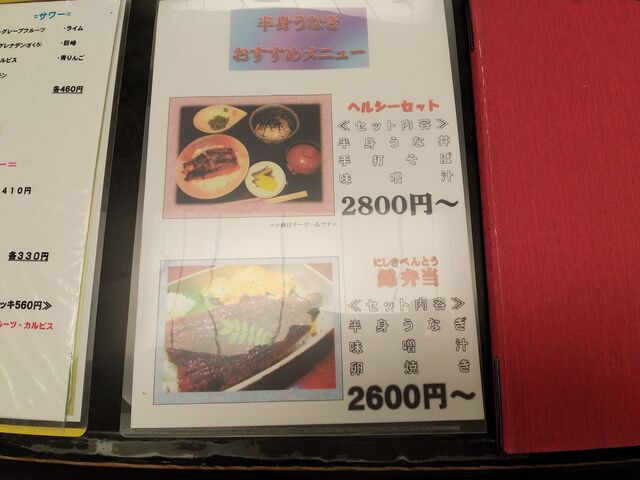 =サワー=
グレープフルーツ ・ライム
グレナデン(ざくろ) ・巨峰
カルピス ・青りんご
各460円
410円
各330円
ッキ560円≫
ルーツ・カルピス
半身うなぎ
おすすめメニュー
ヘルシーセット
≪セット内容≫
半身うな丼
手打そば
味噌汁
2800円～
=小鉢はサービス品です=
にしきべんとう
錦弁当
≪セット内容≫
半身うなぎ
味噌汁
卵焼き
2600円～